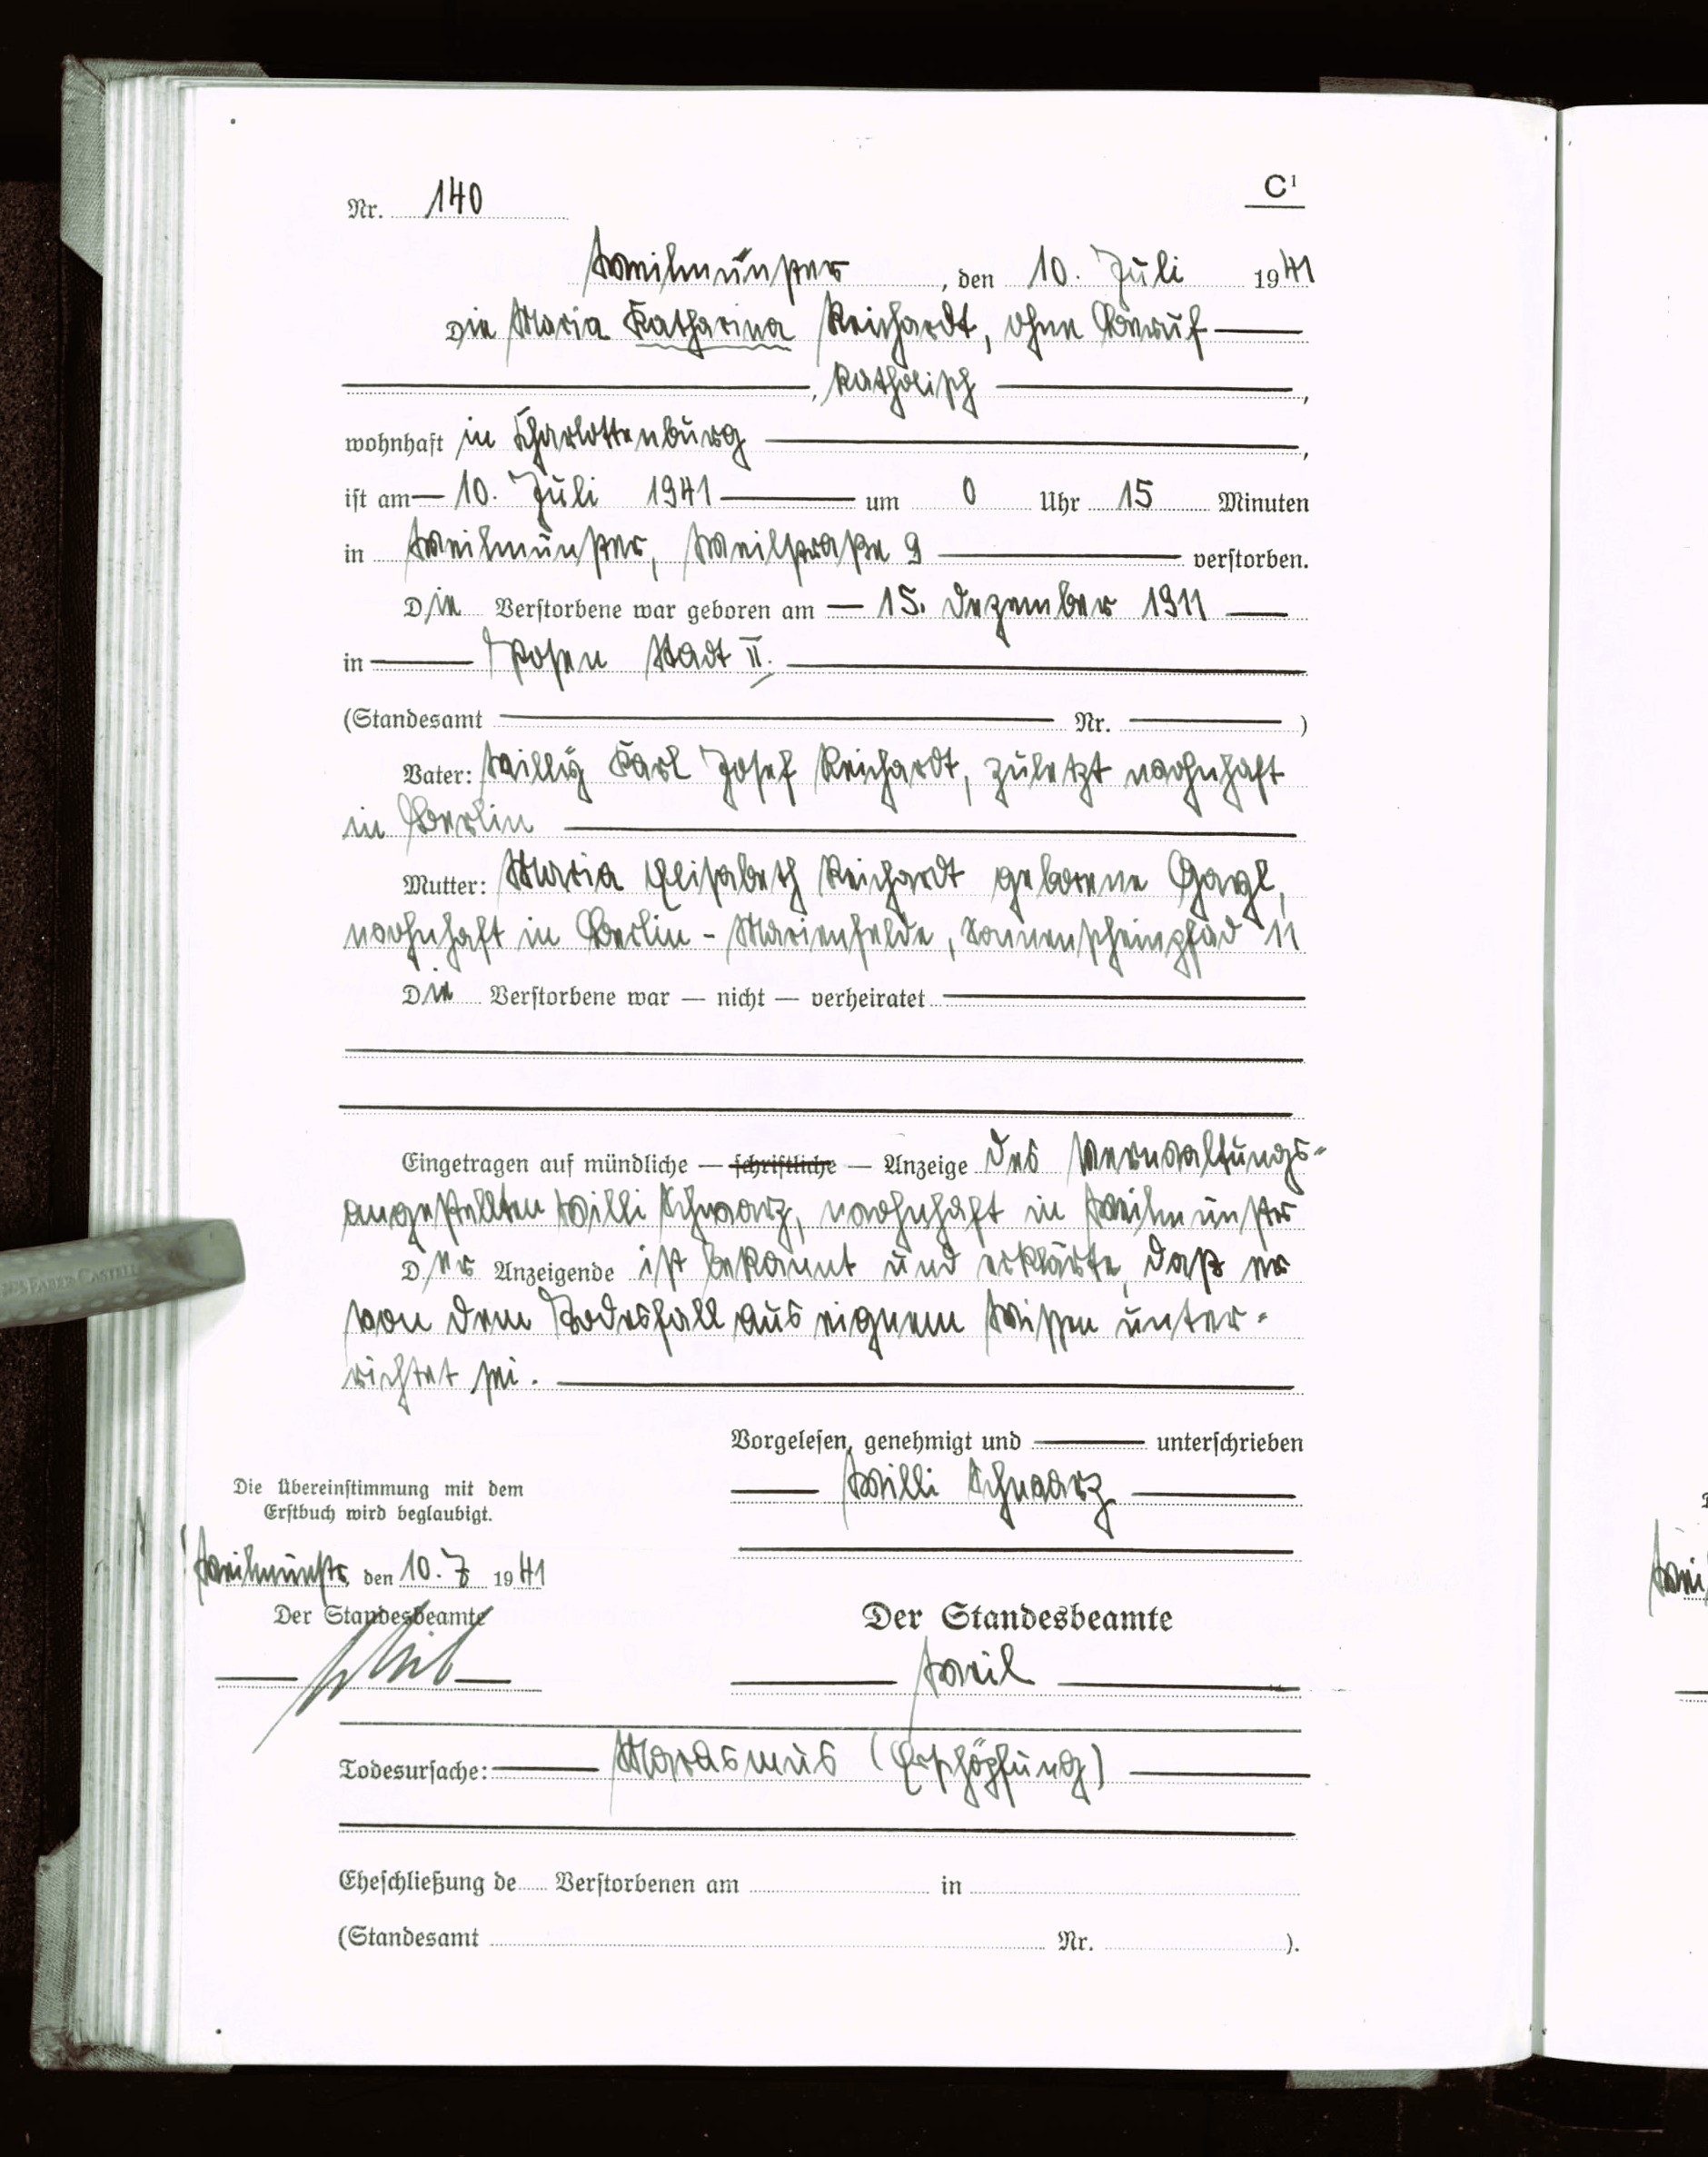 Nr. 140
C¹
Weilmünster, den 10. Juli 1941
Die Maria Katharina Reichardt, ohne Beruf
, katholisch ,
wohnhaft in Charlottenburg ,
ist am 10. Juli 1941 um 0 Uhr 15 Minuten
in Weilmünster, Weilstraße 9 verstorben.
Die Verstorbene war geboren am 15. Dezember 1911
in Posen Stadt II.
(Standesamt Nr. )
Vater: Willÿ Karl Josef Reichardt, zuletzt wohnhaft
in Berlin
Mutter: Maria Elisabeth Reichardt geborene
wohnhaft in Berlin - Marienfelde, Sonnenscheinpfad 11
Die Verstorbene war — nicht — verheiratet
Eingetragen auf mündliche — schriftliche — Anzeige des Verwaltungs-
angestellten Willi Schwarz, wohnhaft in Weilmünster
Der Anzeigende ist bekannt und erklärte, daß er
von dem Todesfall aus eignem Wissen unter-
richtet sei.
Vorgelesen, genehmigt und unterschrieben
Willi Schwarz
Die Übereinstimmung mit dem
Erstbuch wird beglaubigt.
Weilmünster, den 10. 7 1941
Der Standesbeamte
Der Standesbeamte
Weil
Todesursache: Marasmus (Erschöpfung)
Eheschließung de Verstorbenen am in
(Standesamt Nr. ).
FABER CASTELL